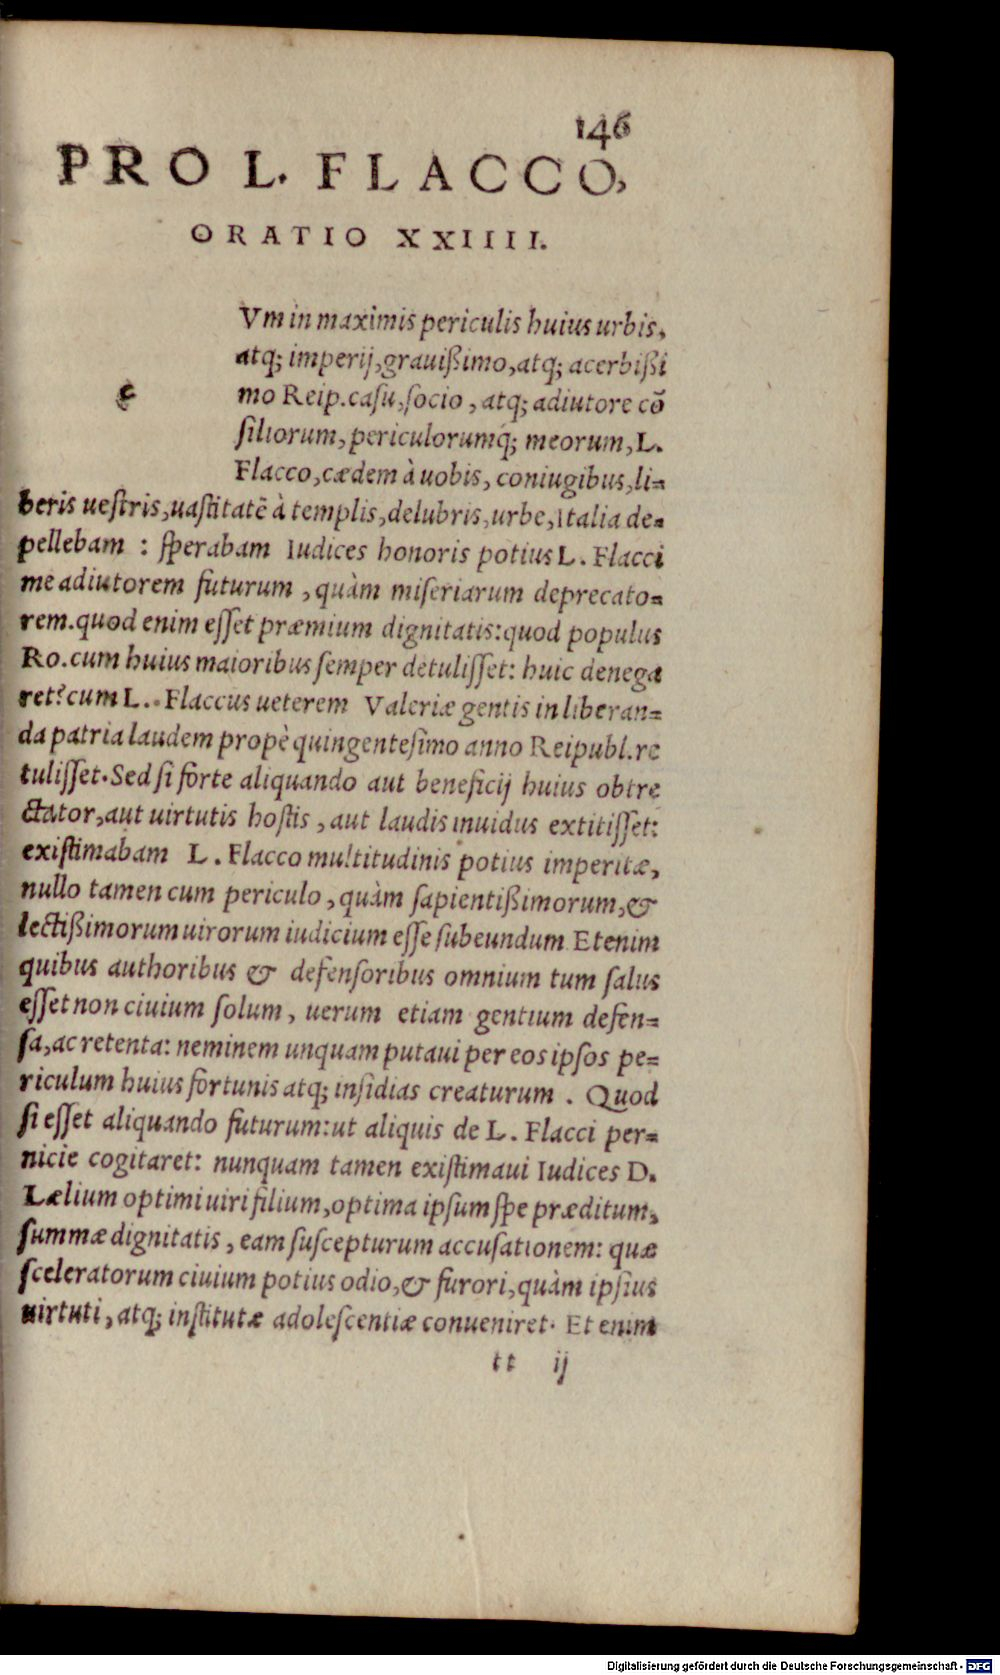 146
PRO L. FLACCO,
ORATIO XXIIII.
c
Vm in maximis periculis huius urbis,
atq; imperij, grauißimo, atq; acerbißi
mo Reip. casu, socio, atq; adiutore cõ
siliorum, periculorumq́; meorum, L.
Flacco, cædem à uobis, coniugibus, li=
beris uestris, uastitatẽ à templis, delubris, urbe, Italia de=
pellebam : sperabam Iudices honoris potius L. Flacci
me adiutorem futurum , quàm miseriarum deprecato=
rem. quod enim esset præmium dignitatis: quod populus
Ro. cum huius maioribus semper detulisset: huic denega
ret? cum L. Flaccus ueterem Valeriæ gentis in liberan=
da patria laudem propè quingentesimo anno Reipubl. re
tulisset. Sed si forte aliquando aut beneficij huius obtre
ctator, aut uirtutis hostis , aut laudis inuidus extitisset:
existimabam L. Flacco multitudinis potius imperitæ,
nullo tamen cum periculo , quàm sapientißimorum, &
lectißimorum uirorum iudicium esse subeundum Etenim
quibus authoribus & defensoribus omnium tum salus
esset non ciuium solum , uerum etiam gentium defen=
sa, ac retenta: neminem unquam putaui per eos ipsos pe=
riculum huius fortunis atq; insidias creaturum . Quod
si esset aliquando futurum: ut aliquis de L. Flacci per=
nicie cogitaret: nunquam tamen existimaui Iudices D.
Lælium optimi uiri filium, optima ipsum spe præditum,
summæ dignitatis , eam suscepturum accusationem: quæ
sceleratorum ciuium potius odio, & furori, quàm ipsius
uirtuti , atq; institutæ adolescentiæ conueniret. Et enim
tt ij
Digitalisierung gefördert durch die Deutsche Forschungsgemeinschaft - DFG